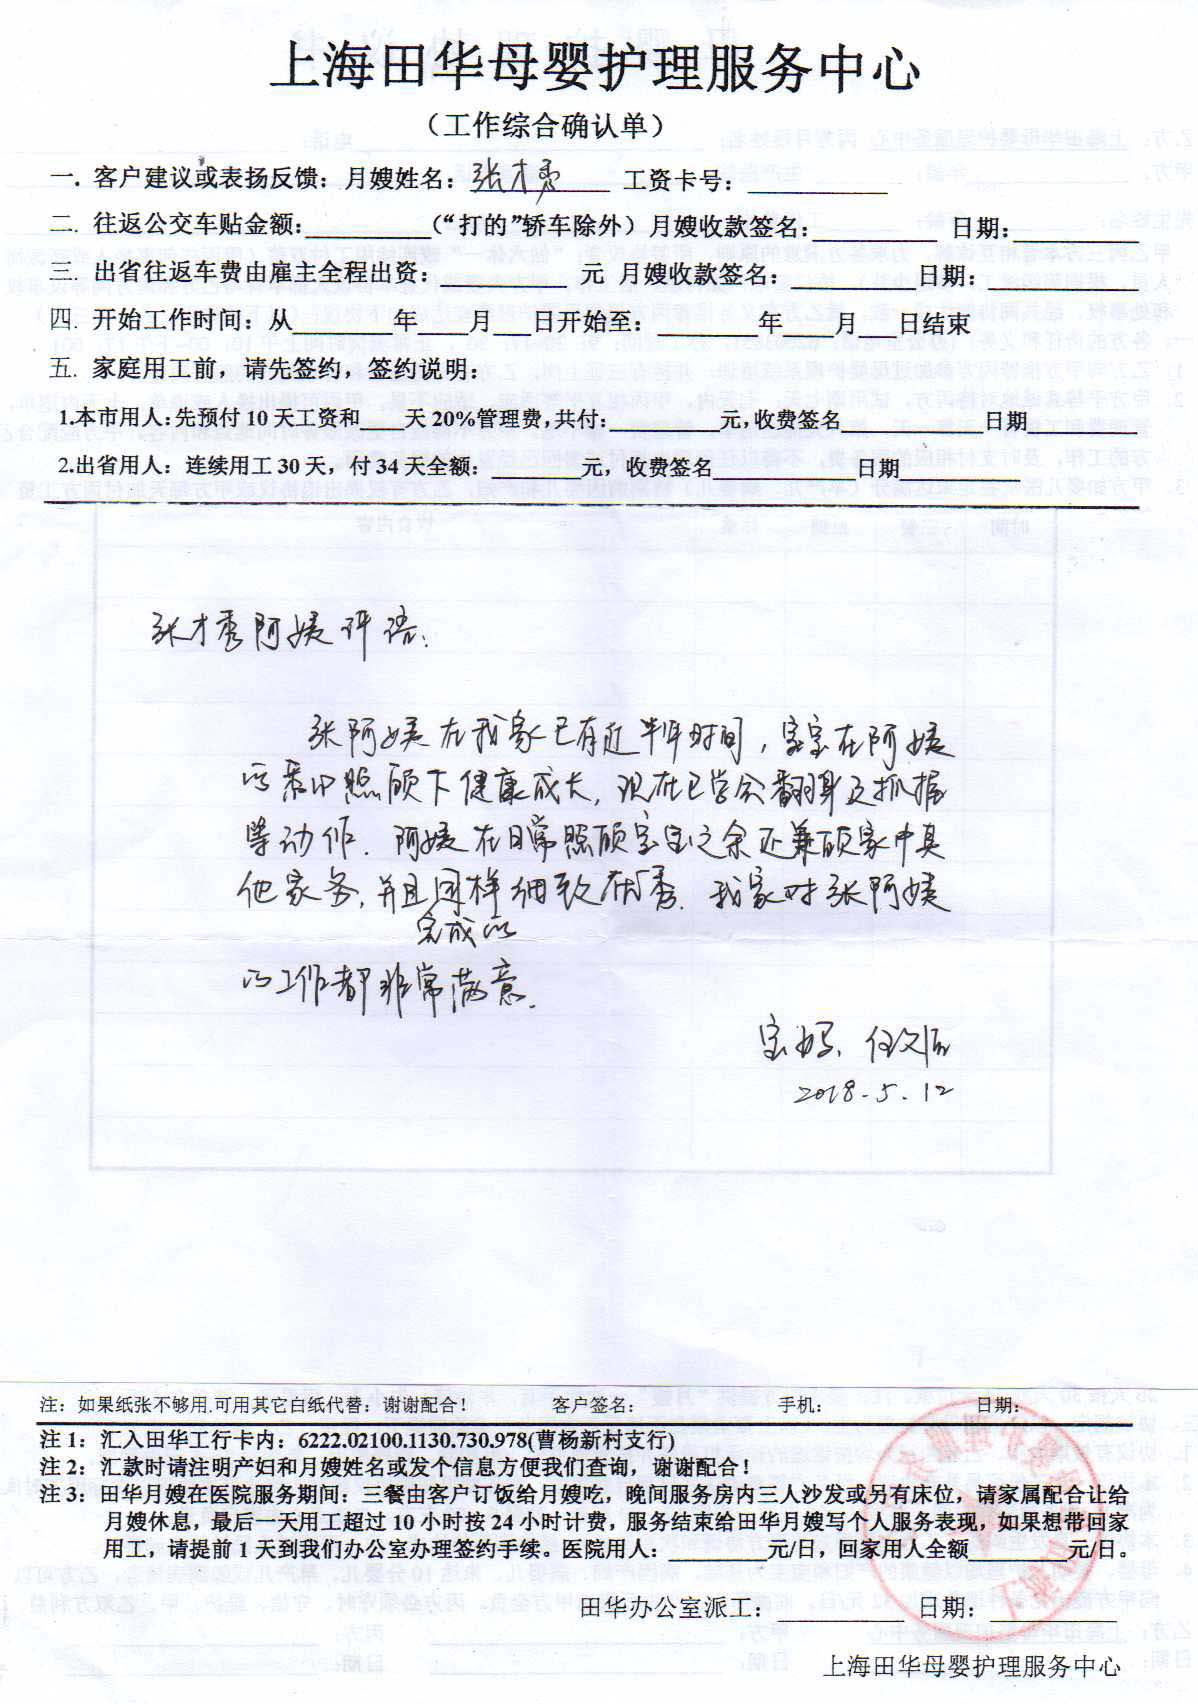 上海田华母婴护理服务中心
（工作综合确认单）
一. 客户建议或表扬反馈：月嫂姓名：张才秀 工资卡号：
二. 往返公交车贴金额：（“打的”轿车除外）月嫂收款签名： 日期：
三. 出省往返车费由雇主全程出资： 元 月嫂收款签名： 日期：
四. 开始工作时间：从 年 月 日开始至： 年 月 日结束
五. 家庭用工前，请先签约，签约说明：
1.本市用人：先预付 10 天工资和 天 20%管理费，共付： 元，收费签名 日期
2.出省用人：连续用工 30 天，付 34 天全额： 元，收费签名 日期
张才秀阿姨评语.
张阿姨在我家已有近半年时间，宝宝在阿姨
的悉心照顾下健康成长，现在已学会翻身及抓握
等动作. 阿姨在日常照顾宝宝之余还兼顾家中其
他家务，并且同样细致优秀. 我家对张阿姨
完成的
的工作都非常满意.
宝妈
2018.5.12
注：如果纸张不够用.可用其它白纸代替，谢谢配合！ 客户签名： 手机： 日期：
注 1：汇入田华工行卡内：6222.02100.1130.730.978(曹杨新村支行)
注 2：汇款时请注明产妇和月嫂姓名或发个信息方便我们查询，谢谢配合！
注 3：田华月嫂在医院服务期间：三餐由客户订饭给月嫂吃，晚间服务房内三人沙发或另有床位，请家属配合让给
月嫂休息，最后一天用工超过 10 小时按 24 小时计费，服务结束给田华月嫂写个人服务表现，如果想带回家
用工，请提前 1 天到我们办公室办理签约手续。医院用人： 元/日，回家用人全额 元/日。
田华办公室派工： 日期：
上海田华母婴护理服务中心